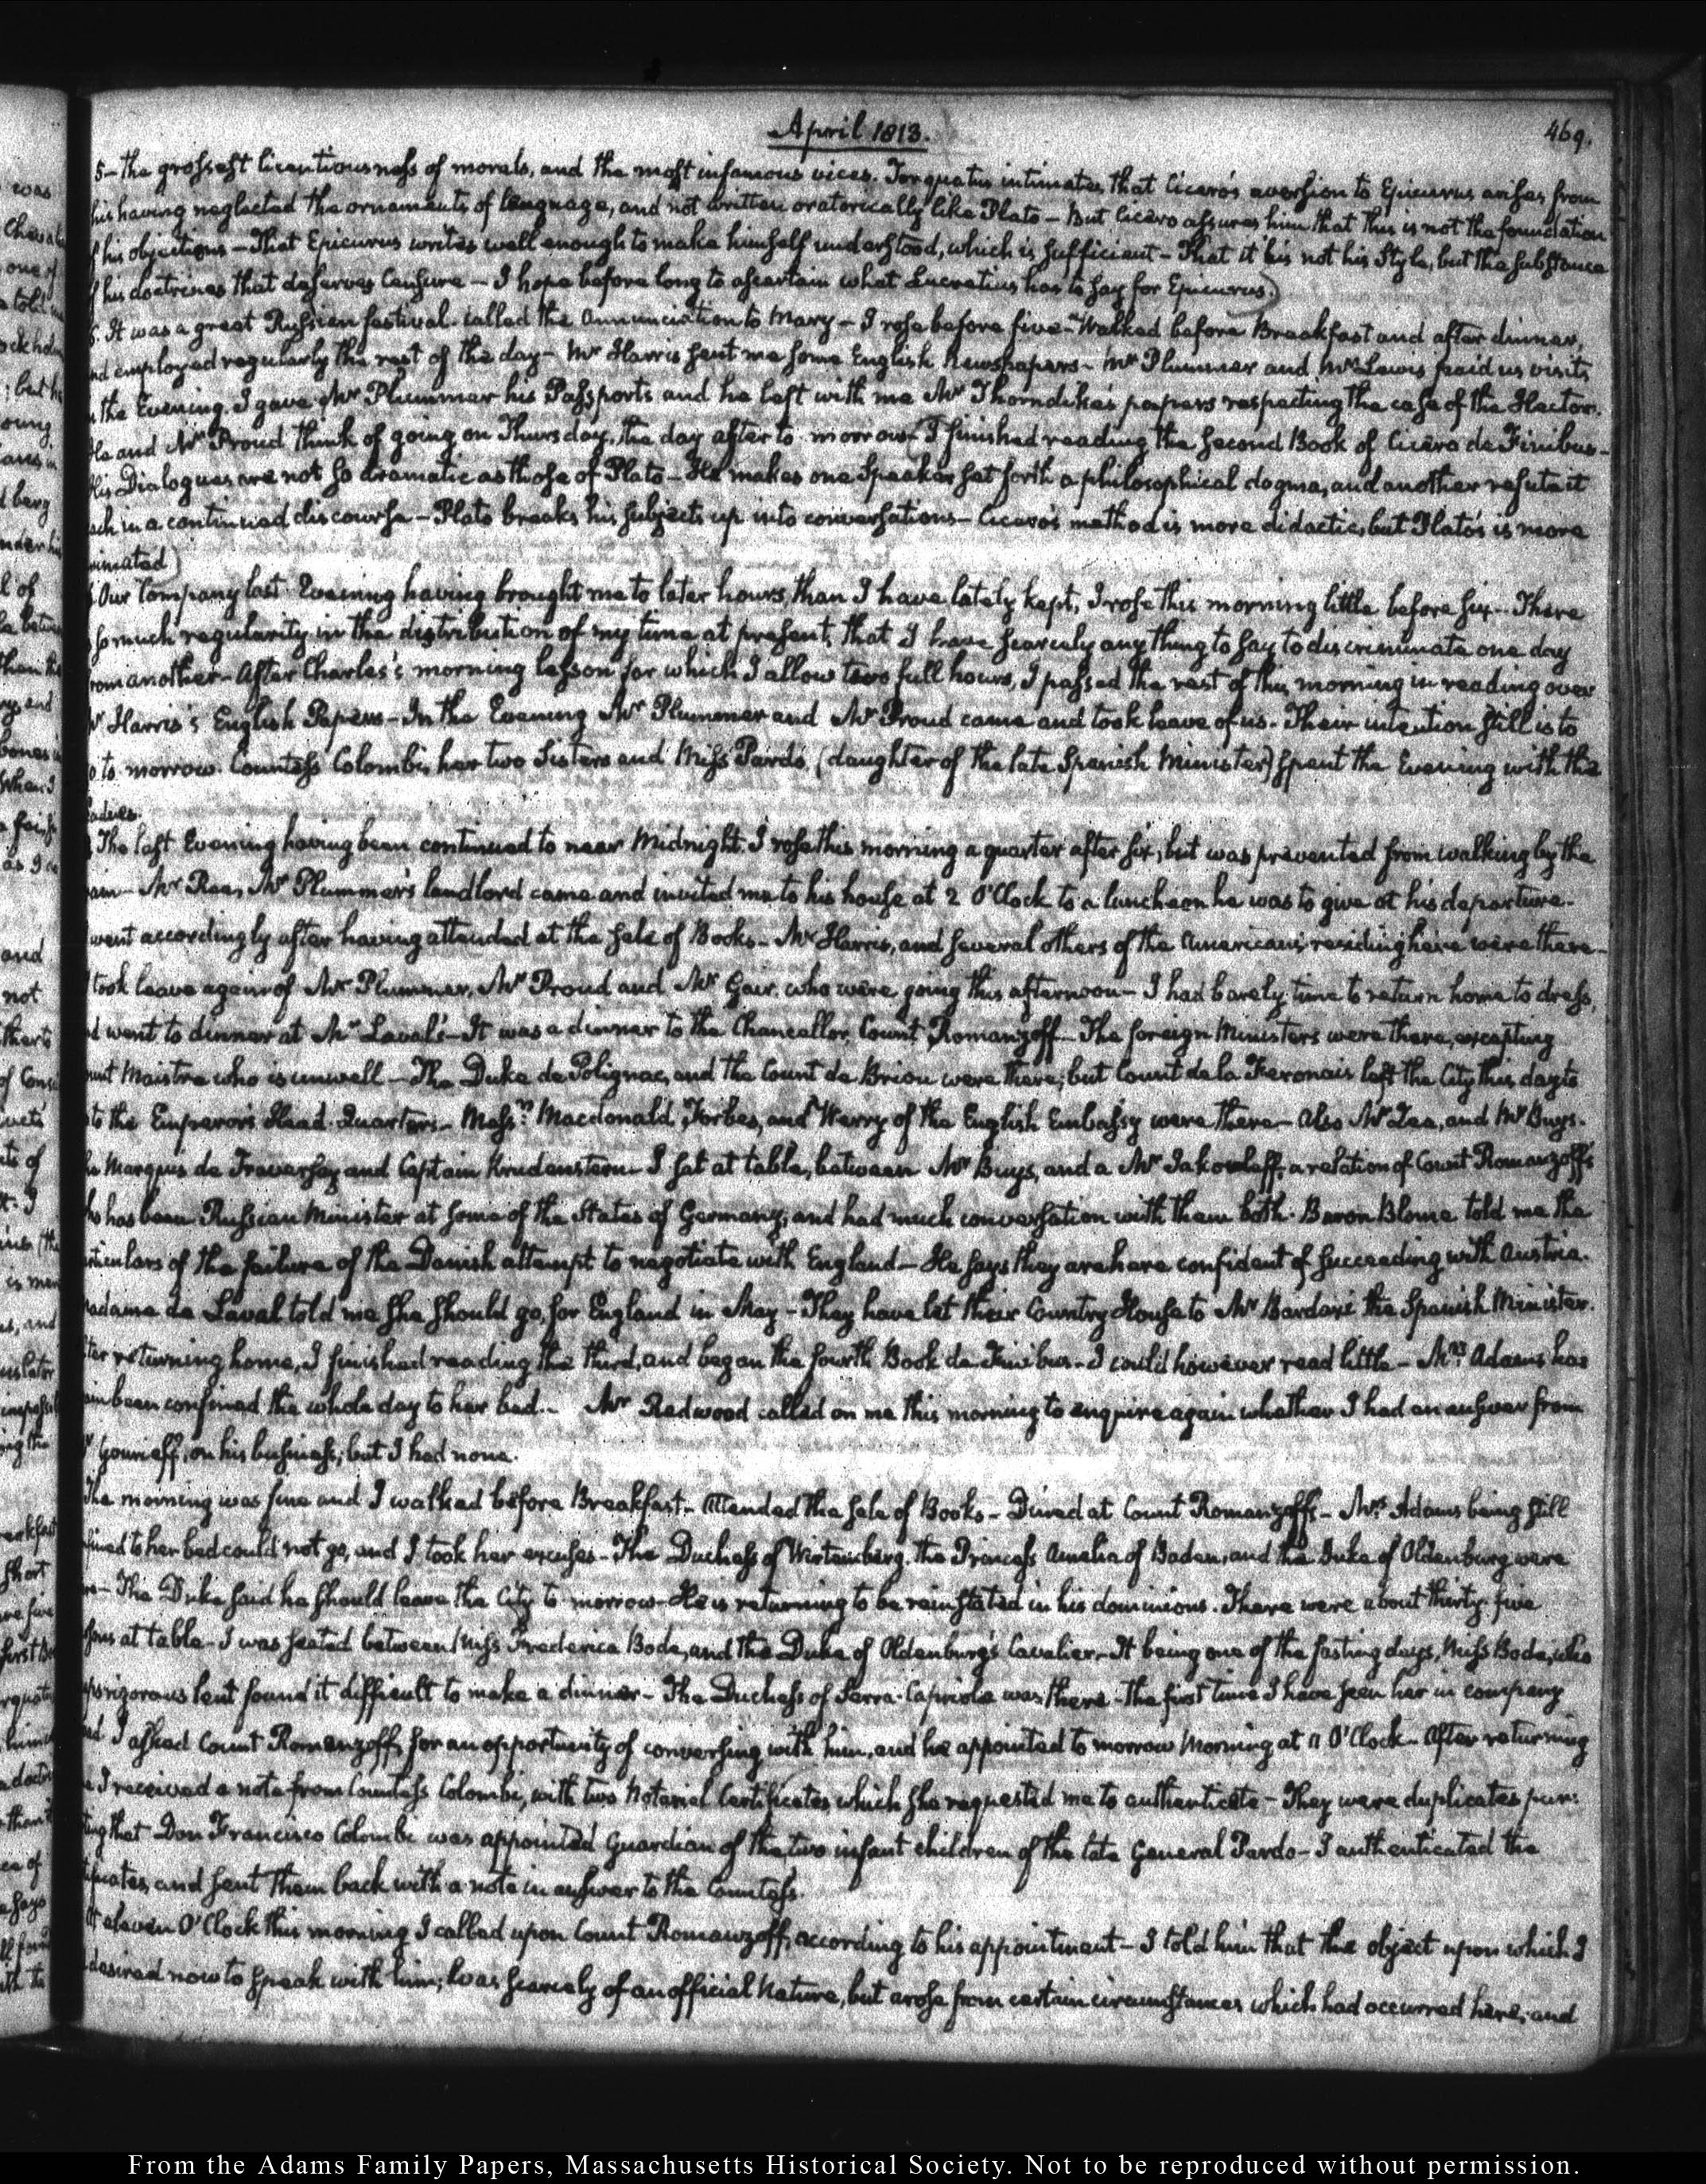 April 1813.
469.
5 - the grossest licentiousness of morals, and the most infamous vices. Torquatus intimates, that Cicero's aversion to Epicurus arises from
his having neglected the ornaments of language, and not written oratorically like Plato - But Cicero assures him that this is not the foundation
f his objections - That Epicurus writes well enough to make himself understood, which is sufficient - That it is not his Style, but the substance
f his doctrines that deserves Censure - I hope before long to ascertain what Lucretius has to say for Epicurus.)
6. It was a great Russian festival. called the Annunciation to Mary - I rose before five - Walked before Breakfast and after dinner,
nd employed regularly the rest of the day - Mr Harris sent me some English Newspapers - Mr Plummer and Mr Lewis paid us visits
the Evening. I gave Mr Plummer his Passports and he left with me Mr Thorndike's papers respecting the case of the Hector.
He and Mr Proud think of going on Thursday, the day after to-morrow - (I finished reading the second Book of Cicero de Finibus -
His Dialogues are not so dramatic as those of Plato - He makes one Speaker set forth a philosophical dogma, and another refute it
ach in a continued discourse - Plato breaks his subjects up into conversations - Cicero's method is more didactic, but Plato's is more
nimated)
Our Company last Evening having brought me to later hours, than I have lately kept, I rose this morning little before six - There
so much regularity in the distribution of my time at present, that I have scarcely any thing to say to discriminate one day
rom another - After Charles's morning lesson for which I allow two full hours, I passed the rest of this morning in reading over
Mr Harris's English Papers - In the Evening Mr Plummer and Mr Proud came and took leave of us - Their intention still is to
o to morrow. Countess Colombi, her two Sisters and Miss Pardo, (daughter of the late Spanish Minister) spent the Evening with the
adies.
The last Evening having been continued to near Midnight. I rose this morning a quarter after six, but was prevented from walking by the
ain - Mr Rea, Mr Plummer's landlord came and invited me to his house at 2 O'Clock to a luncheon he was to give at his departure -
went accordingly after having attended at the sale of Books - Mr Harris, and several others of the Americans residing here were there -
took leave again of Mr Plummer, Mr Proud and Mr Gair. who were going this afternoon - I had barely time to return home to dress,
d went to dinner at Mr Laval's - It was a dinner to the Chancellor, Count Romanzoff - The foreign Ministers were there, excepting
unt Maistre who is unwell - The Duke de Polignac, and the Count de Brion were there; but Count de la Feronais left the City this day to
to the Emperor's Head-Quarters - Messrs Macdonald, Forbes, and Werry of the English Embassy were there - also Mr Zea, and Mr Buys.
he Marquis de Traversay and Captain Krudenstern - I sat at table, between Mr Buys, and a Mr Jakowleff, a relation of Count Romanzoff's
ho has been Russian Minister at some of the States of Germany, and had much conversation with them both. Baron Blome told me the
articulars of the failure of the Danish attempt to negotiate with England - He says they are here confident of succeeding with Austria.
adame de Laval told me she should go, for England in May - They have let their Country House to Mr Bardaxi the Spanish Minister.
ter returning home, I finished reading the third, and began the fourth Book de Finibus - I could however read little - Mrs Adams has
ain been confined the whole day to her bed - Mr Redwood called on me this morning to enquire again whether I had an answer from
Gourieff, on his business; but I had none.
The morning was fine and I walked before Breakfast - Attended the sale of Books - Dined at Count Romanzoff's - Mrs Adams being still
fined to her bed could not go, and I took her excuses - The Duchess of Wirtemberg, the Princess Amelia of Baden, and the Duke of Oldenburg were
re - The Duke said he should leave the City to-morrow - He is returning to be reinstated in his dominions. There were about thirty-five
sons at table - I was seated between Miss Frederica Bode, and the Duke of Oldenburg's Cavalier - It being one of the fasting days, Miss Bode, who
eps rigorous lent found it difficult to make a dinner - The Duchess of Serra-Capriola was there - the first time I have seen her in company
I asked Count Romanzoff, for an opportunity of conversing with him, and he appointed to morrow Morning at 11 O'Clock - After returning
e I received a note from Countess Colombi, with two Notarial Certificates which she requested me to authenticate - They were duplicates pur:
ting that Don Francisco Colombi was appointed Guardian of the two infant children of the late General Pardo - I authenticated the
ificates, and sent them back with a note in answer to the Countess.
At eleven O'Clock this morning I called upon Count Romanzoff, according to his appointment - I told him that the object upon which I
desired now to speak with him, was scarcely of an official Nature, but arose from certain circumstances which had occurred here; and
From the Adams Family Papers, Massachusetts Historical Society. Not to be reproduced without permission.